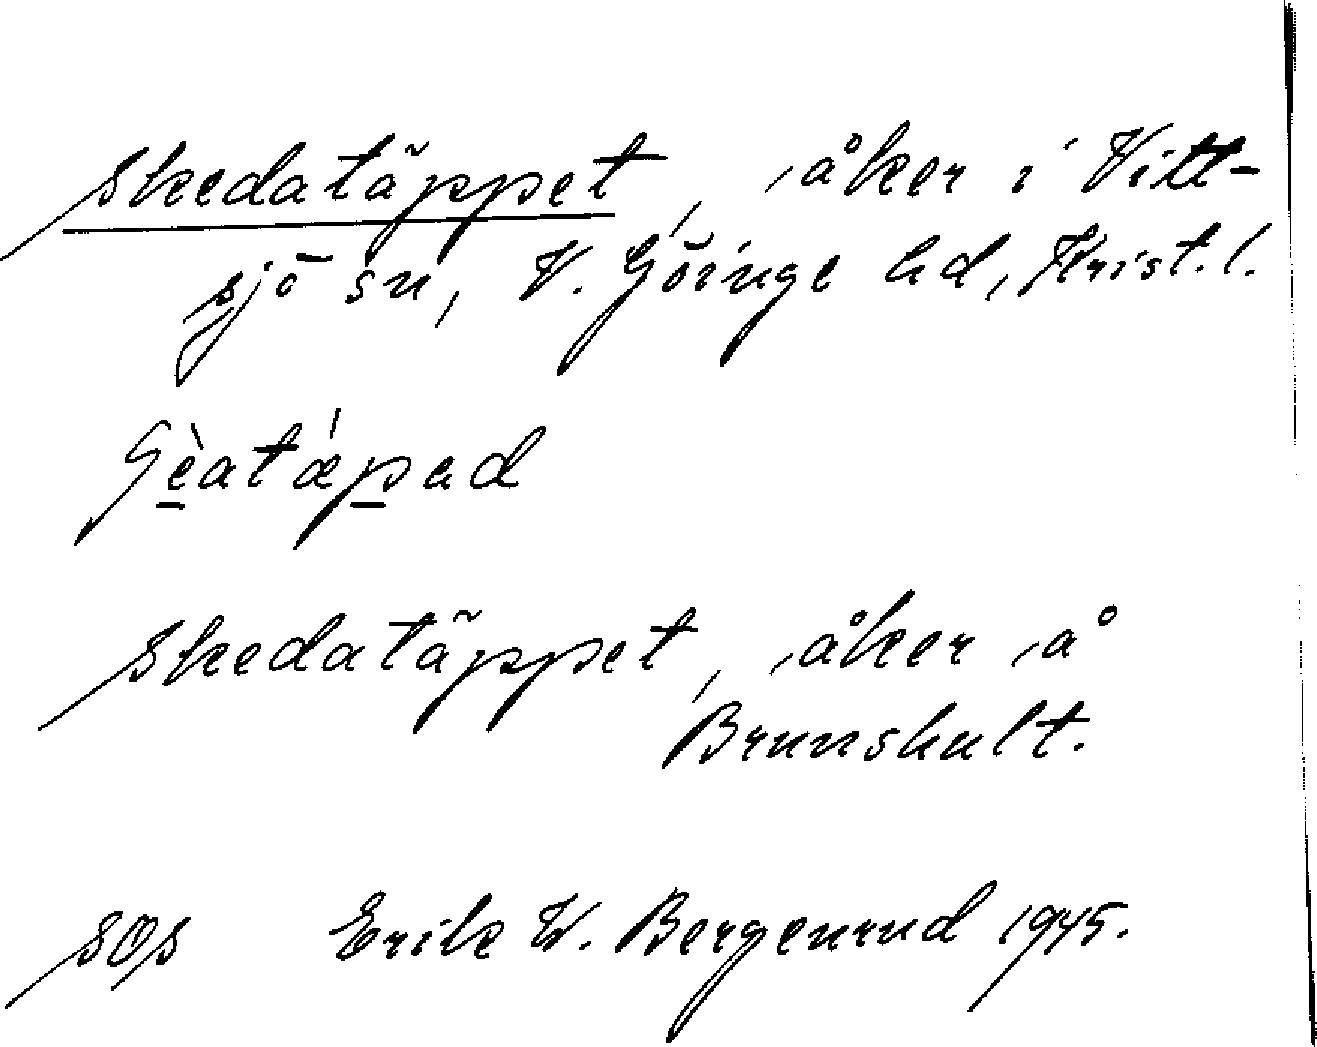 Skedatäppet, åker i Vitt-
sjö sn, V. Göinge hd, Krist. l.
Skedatäppet, åker å
Brunshult.
sOs Erik W. Bergenrud 1945.